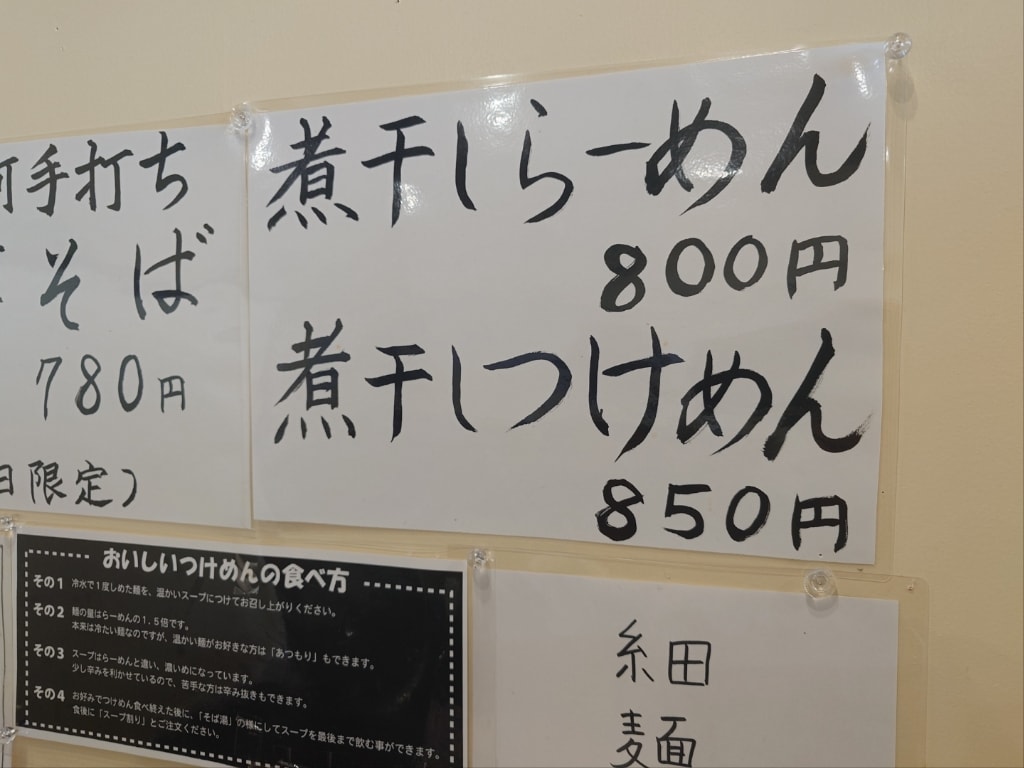 手打ち
そば
780円
日限定)
煮干しらーめん
800円
煮干しつけめん
850円
おいしいつけめんの食べ方
その1 冷水で1度しめた麺を、温かいスープにつけてお召し上がりください。
その2 麺の量はらーめんの1.5倍です。
本来は冷たい麺なのですが、温かい麺がお好きな方は「あつもり」もできます。
その3 スープはらーめんと違い、濃いめになっています。
少し辛みを利かせているので、苦手な方は辛み抜きもできます。
その4 お好みでつけめん食べ終えた後に、「そば湯」の様にしてスープを最後まで飲む事ができます。
食後に「スープ割り」とご注文ください。
細
麺